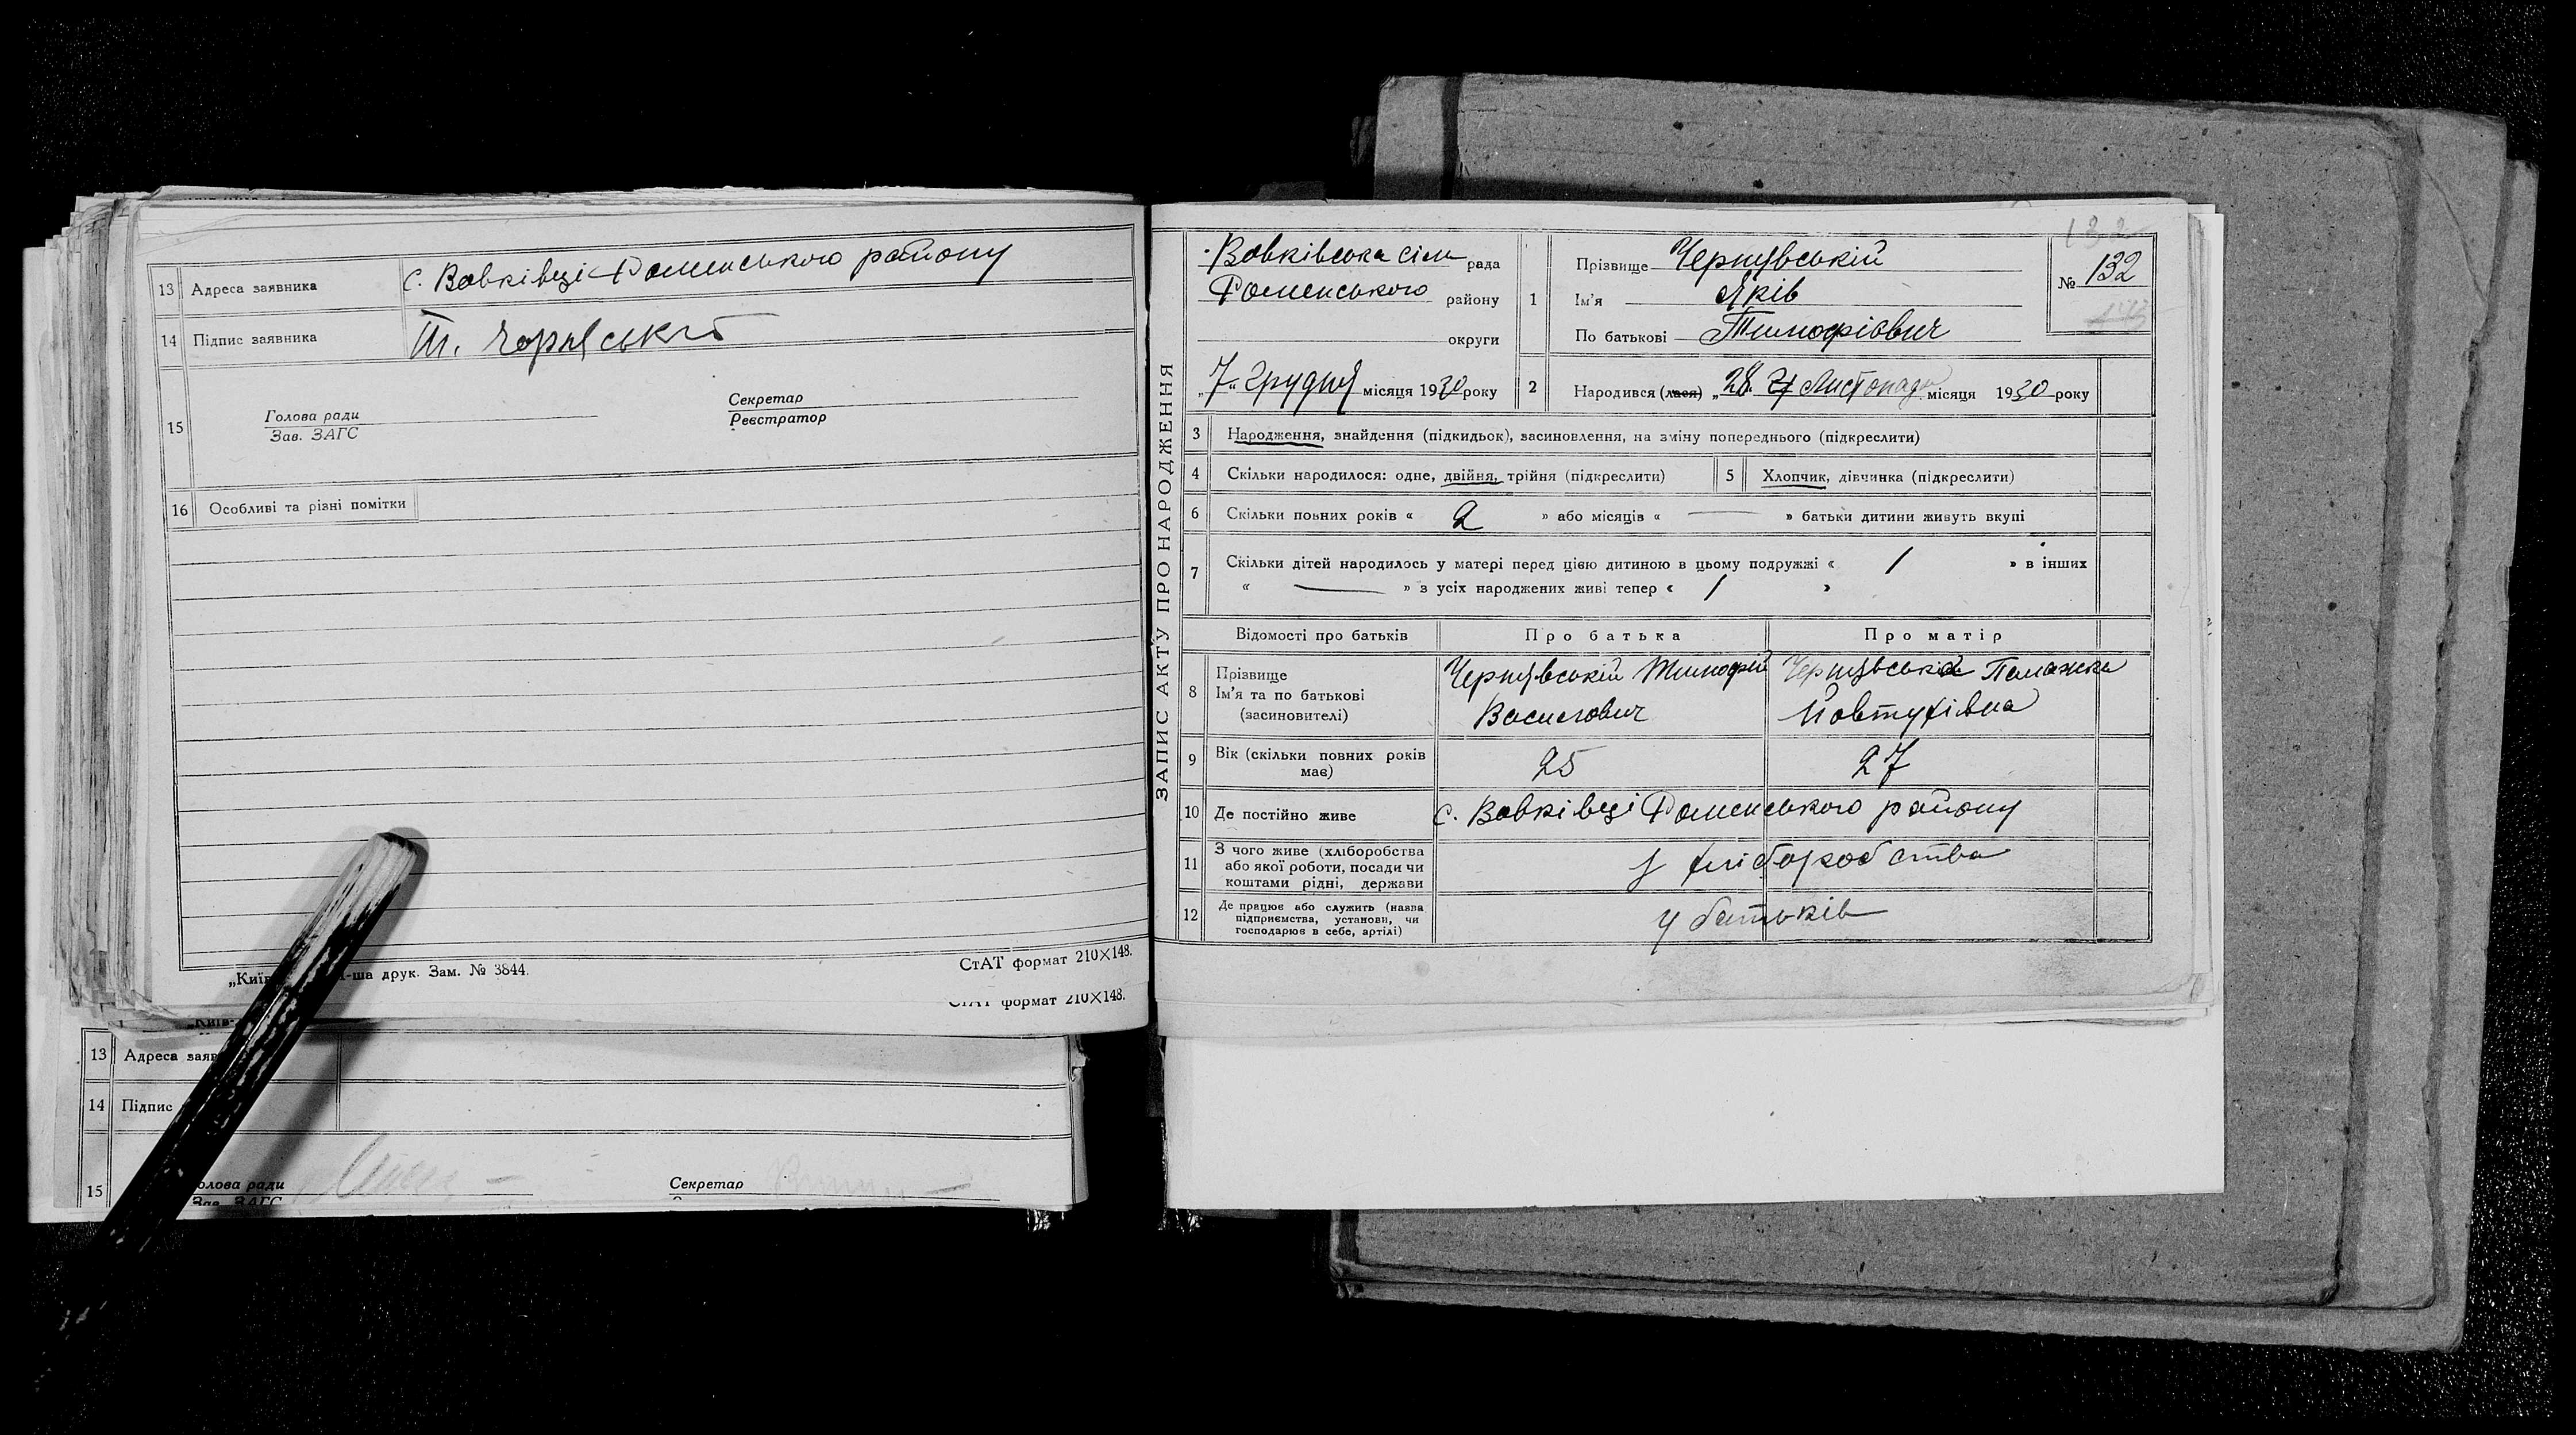 13 Адреса заявника с. Вовківці Роменського району
14 Підпис заявника Т. Чорнявський
15 Голова ради
Зав. ЗАГС
Секретар
Реєстратор
16 Особливі та різні помітки
1-ша друк. Зам. № 3844.
СтАТ формат 210×148.
СтАТ формат 210×148.
13 Адреса
14 Підпис
15 Голова ради
Зав. ЗАГС
Секретар
ЗАПИС АКТУ ПРО НАРОДЖЕННЯ
Вовківська сіль рада
Роменського району
округи
„7“ Грудня місяця 1930 року
132
№ 132
1 Прізвище Чернявській
Ім'я Яків
По батькові Тимофієвич
2 Народився (лася) „28 Листопада місяця 1930 року
3 Народження, знайдення (підкидьок), засиновлення, на зміну попереднього (підкреслити)
4 Скільки народилося: одне, двійня, трійня (підкреслити)
5 Хлопчик, дівчинка (підкреслити)
6 Скільки повних років « 2 » або місяців « — » батьки дитини живуть вкупі
7 Скільки дітей народилось у матері перед цією дитиною в цьому подружжі « 1 » в інших
« — » з усіх народжених живі тепер « 1 »
Відомості про батьків Про батька Про матір
8 Прізвище
Ім'я та по батькові
(засиновителі)
Чернявській Тимофій
Василович
Чернявська Палажка
Йовтухівна
9 Вік (скільки повних років
має) 25 27
10 Де постійно живе с. Вовківці Роменського району
11 З чого живе (хліборобства
або якої роботи, посади чи
коштами рідні, держави
з хліборобства
12 Де працює або служить (назва
підприємства, установи, чи
господарює в себе, артілі)
у батьків